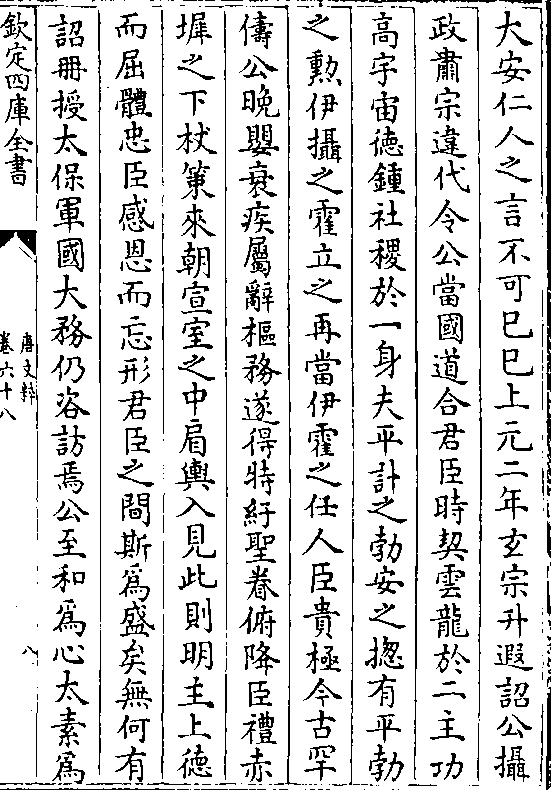 大安仁人之言不可巳巳上元二年玄宗升遐詔公攝
政肅宗違代令公當國道合君臣時契雲龍於二主功
高宇宙德鍾社稷於一身夫平計之勃安之揔有平勃
之勲伊攝之霍立之再當伊霍之任人臣貴極今古罕
儔公晩嬰衰疾屬辭樞務遂得特紆聖眷俯降臣禮赤
墀之下杖策來朝宣室之中肩輿入見此則明主上德
而屈體忠臣感恩而忘形君臣之間斯為盛矣無何有
詔冊授太保軍國大務仍咨訪焉公至和為心太素為
欽定四庫全書
唐文粹
卷六十八
八